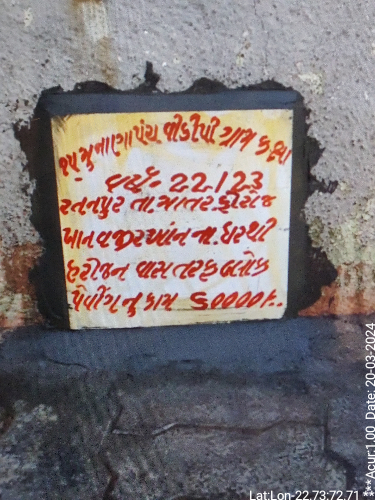 ૧૫ મુ નાણા પંચ વીડીપી ગ્રામ કક્ષા
વર્ષ:- 22/23
રતનપુર તા. માતર ફીરોજ
ખાન વજીરખાંન ના. ઘરથી
હરીજન વાસ તરફ બલોક
પેવીંગ નુ કામ ૬૦૦૦૦/.
Lat:Lon-22.73:72.71
***Acur:1.00 Date: 20-03-2024